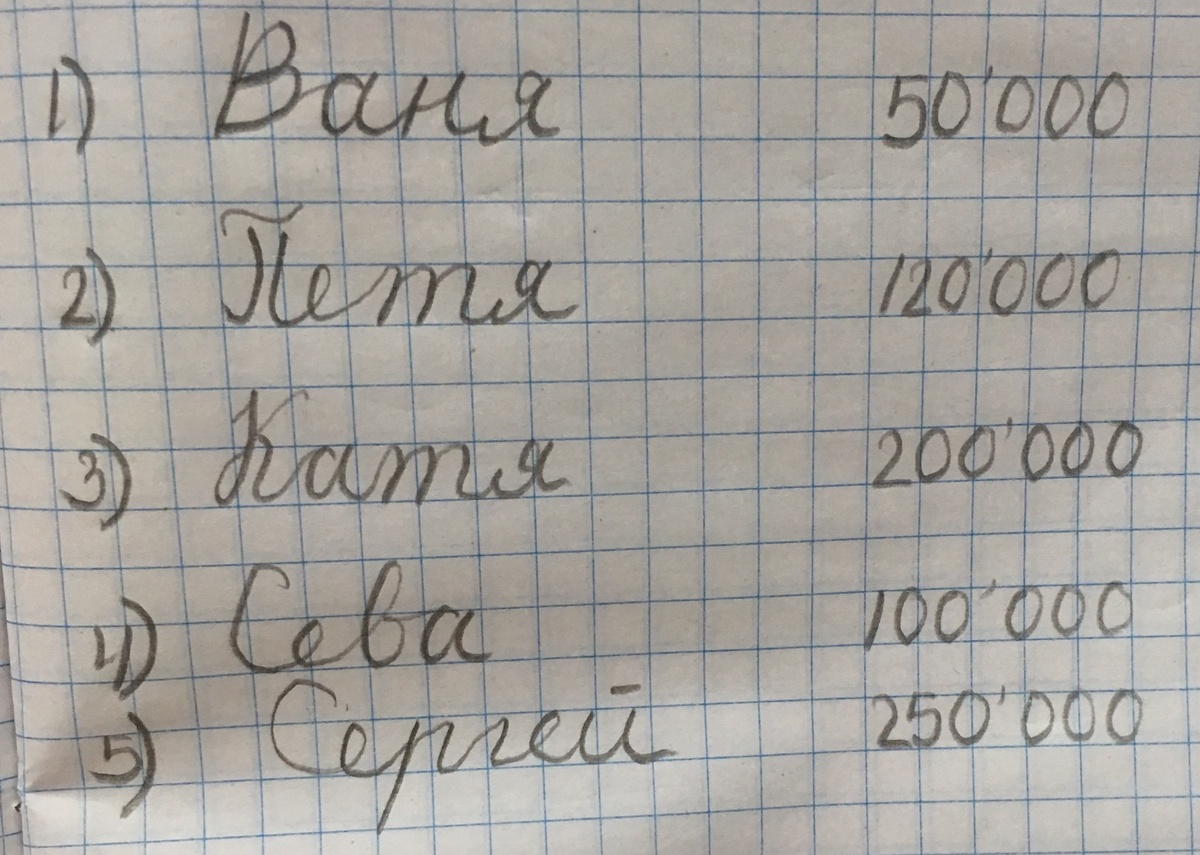 1) Ваня 50'000
2) Петя 120'000
3) Катя 200'000
4) Сева 100'000
5) Сергей 250'000